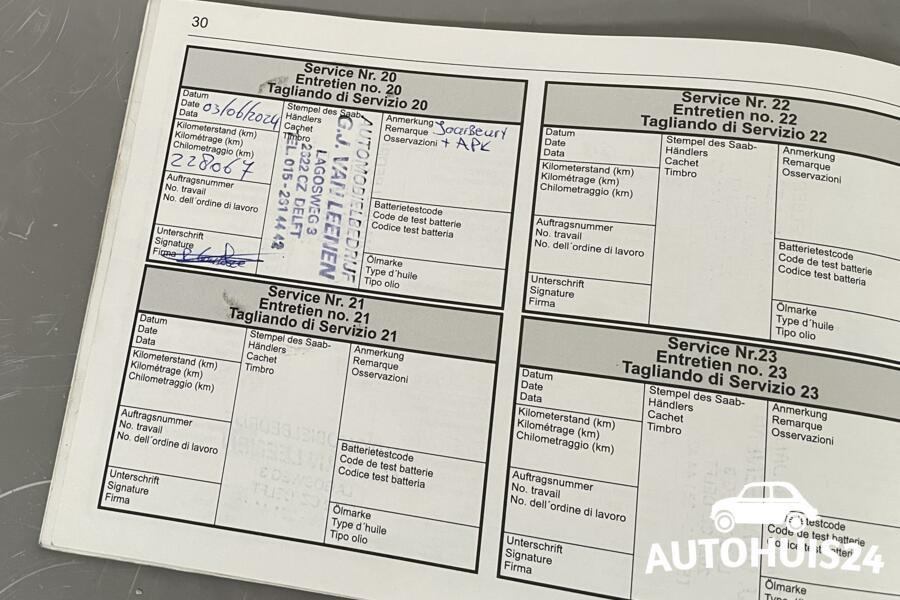 30
Service Nr. 20
Entretien no. 20
Tagliando di Servizio 20
Datum
Date 03/06/2024
Data
Kilometerstand (km)
Kilométrage (km)
Chilometraggio (km)
228067
Auftragsnummer
No. travail
No. dell'ordine di lavoro
Unterschrift
Signature
Firma
Stempel des Saab-
Händlers
Cachet
Timbro
AUTOMOBIELBEDRIJF
G.J. VAN LEENEN
LAGOSWEG 3
2622 CZ DELFT
TEL. 015 - 231 44 42
Anmerkung
Remarque
Osservazioni + APK
Batterietestcode
Code de test batterie
Codice test batteria
Ölmarke
Type d'huile
Tipo olio
Service Nr. 21
Entretien no. 21
Tagliando di Servizio 21
Datum
Date
Data
Kilometerstand (km)
Kilométrage (km)
Chilometraggio (km)
Auftragsnummer
No. travail
No. dell'ordine di lavoro
Unterschrift
Signature
Firma
Stempel des Saab-
Händlers
Cachet
Timbro
Anmerkung
Remarque
Osservazioni
Batterietestcode
Code de test batterie
Codice test batteria
Ölmarke
Type d'huile
Tipo olio
Service Nr. 22
Entretien no. 22
Tagliando di Servizio 22
Datum
Date
Data
Kilometerstand (km)
Kilométrage (km)
Chilometraggio (km)
Auftragsnummer
No. travail
No. dell'ordine di lavoro
Unterschrift
Signature
Firma
Stempel des Saab-
Händlers
Cachet
Timbro
Anmerkung
Remarque
Osservazioni
Batterietestcode
Code de test batterie
Codice test batteria
Ölmarke
Type d'huile
Tipo olio
Service Nr.23
Entretien no. 23
Tagliando di Servizio 23
Datum
Date
Data
Kilometerstand (km)
Kilométrage (km)
Chilometraggio (km)
Auftragsnummer
No. travail
No. dell'ordine di lavoro
Unterschrift
Signature
Firma
Stempel des Saab-
Händlers
Cachet
Timbro
Anmerkung
Remarque
Osservazioni
Ölmarke
AUTOHUIS24